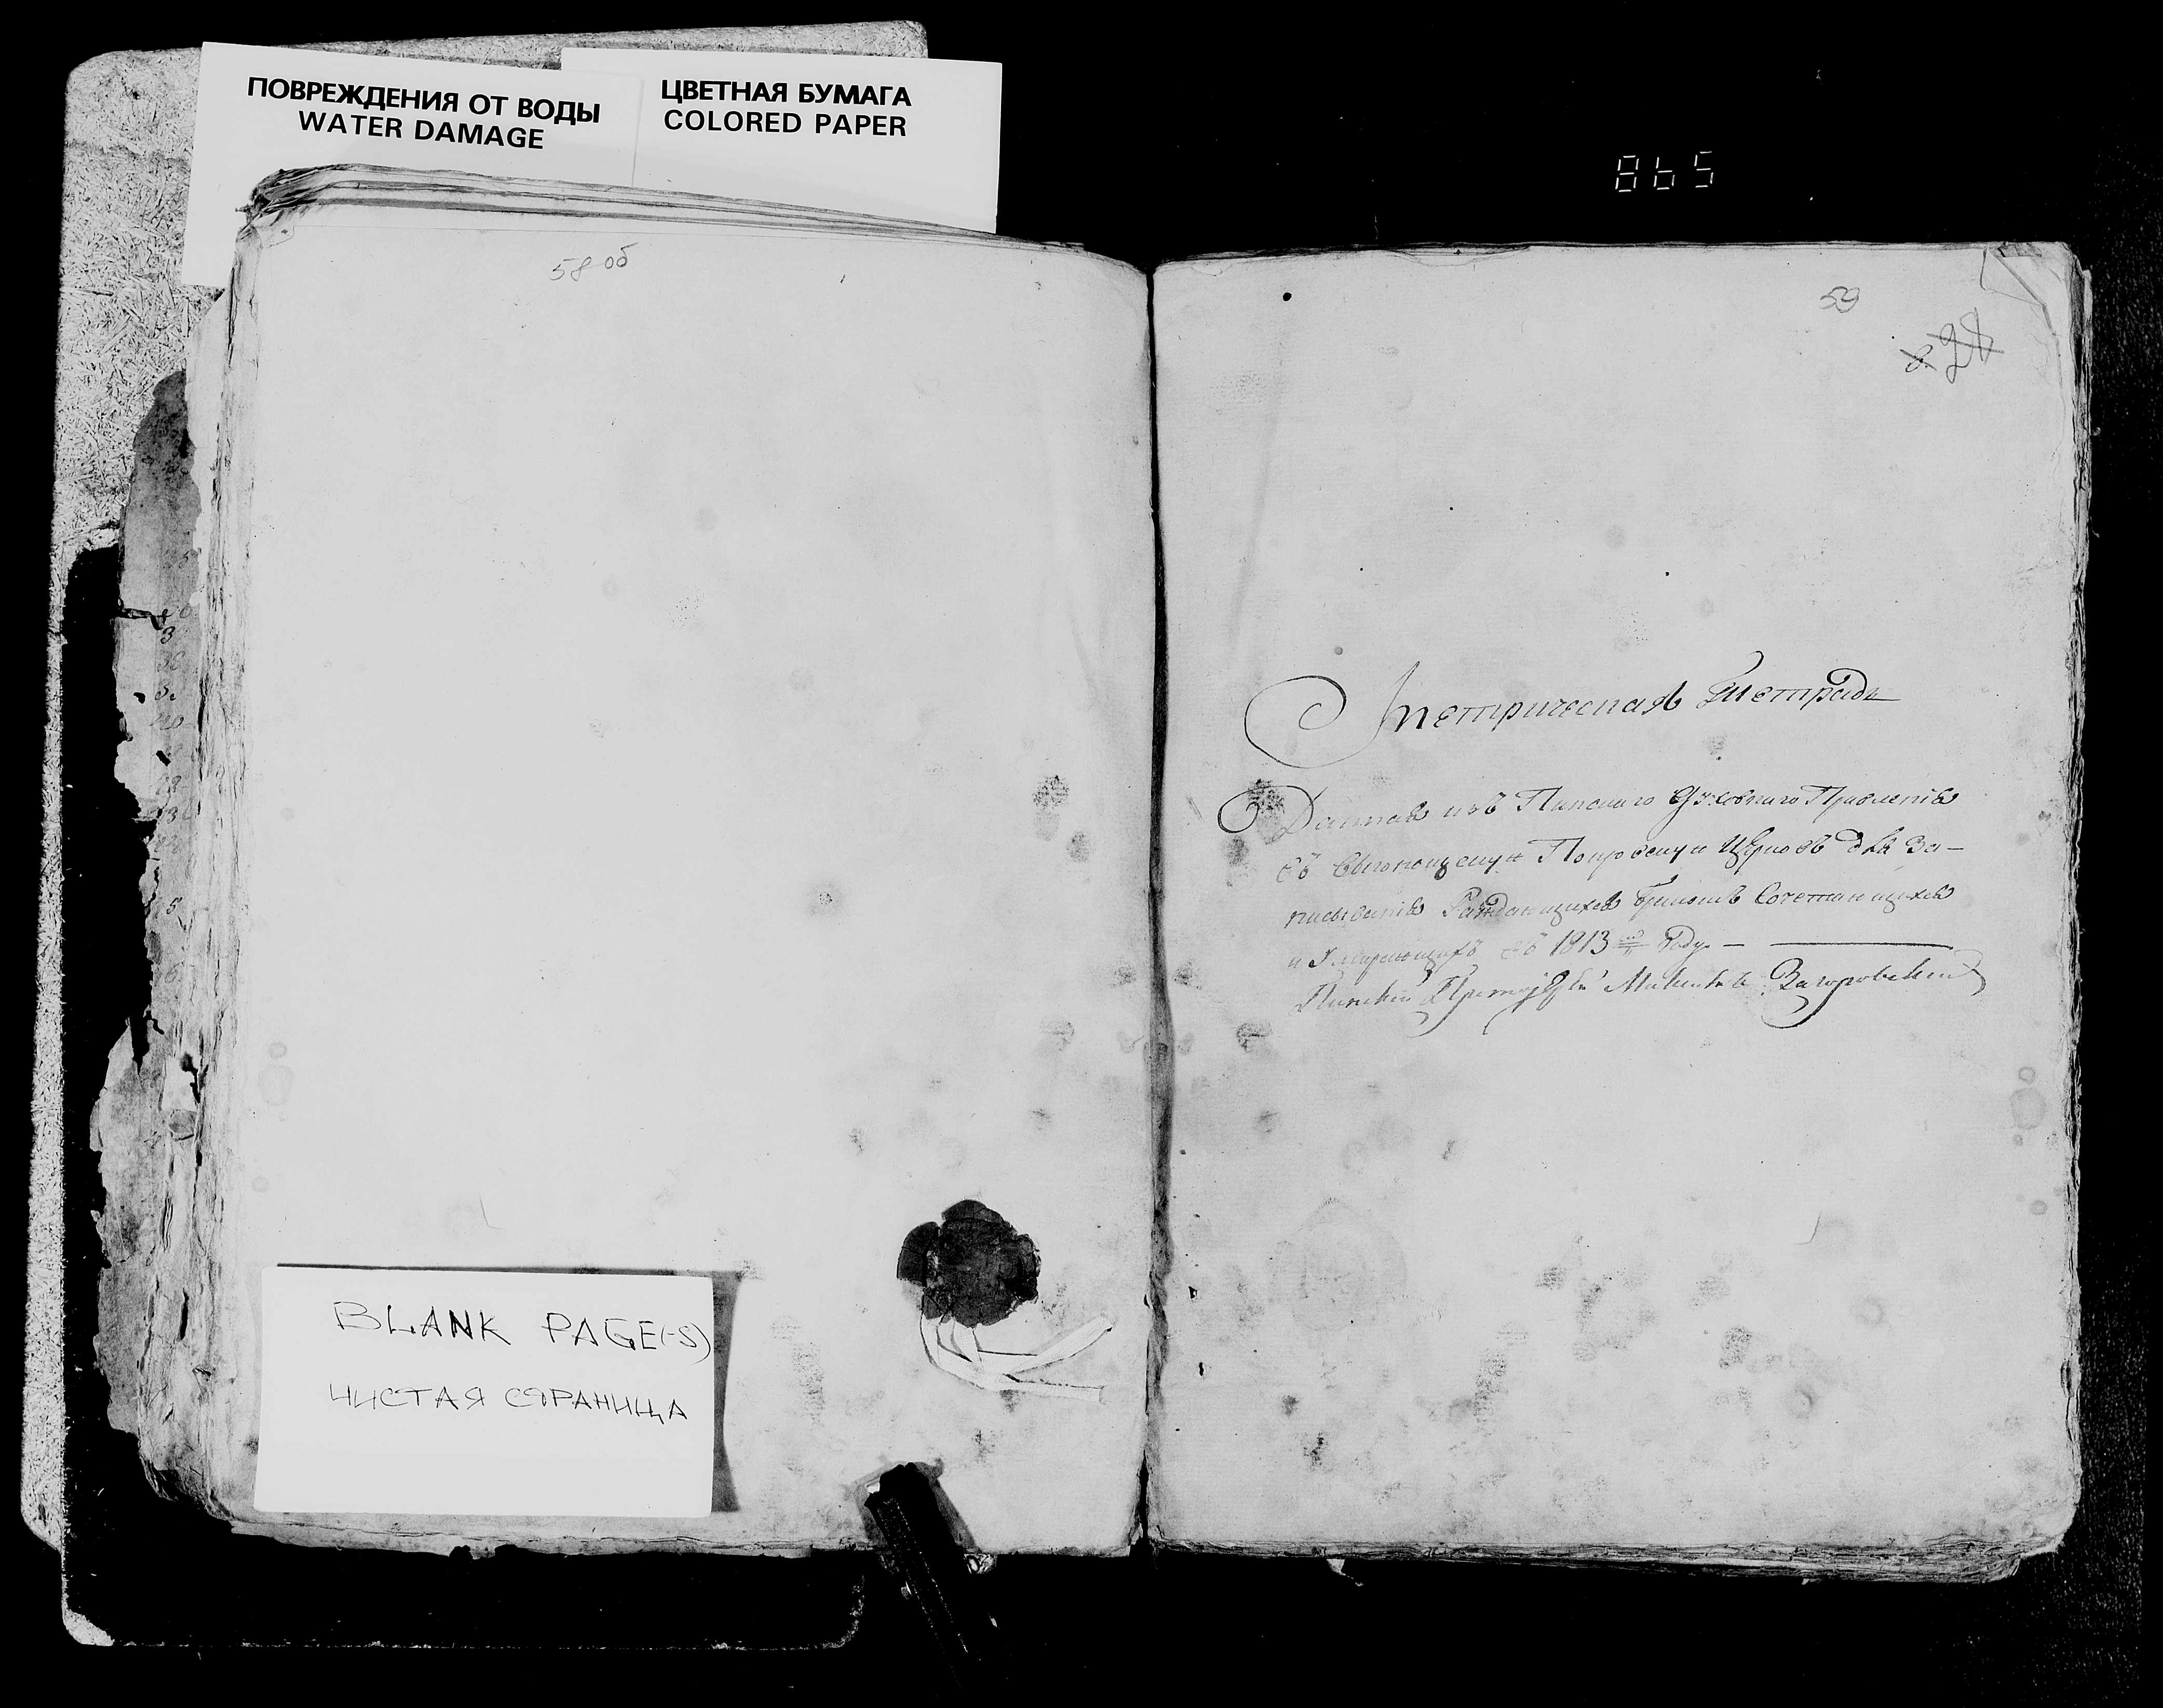 ПОВРЕЖДЕНИЯ ОТ ВОДЫ
WATER DAMAGE
ЦВЕТНАЯ БУМАГА
COLORED PAPER
865
58 об
BLANK PAGE(-S)
ЧИСТАЯ СТРАНИЦА
59
28
Метрическая Тетрадь
Данная изъ Пинскаго Духовнаго Правленія
въ Покровскую Церковь для За-
писыванія Раждающихся Бракомъ Сочетающихся
и Умирающихъ въ 1813 году —
Пинскій Загоровскій